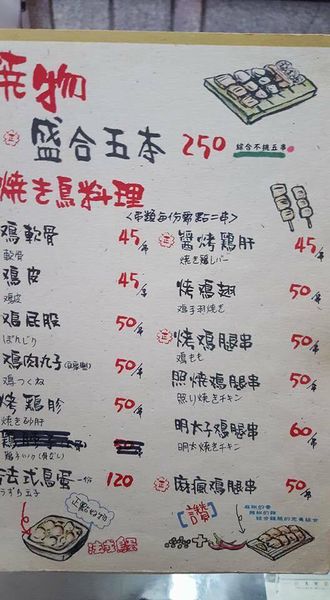 燒物
正 盛合五本 250 綜合不挑五串
焼き鳥料理
雞軟骨 45/串
軟骨
雞皮 45/串
鶏皮
雞屁股 50/串
ぼんじり
雞肉丸子 50/串
鶏つくね
烤雞胗 50/串
焼き砂肝
法式烏蛋 一份 120
うずら玉子
醬烤雞肝 45/串
焼き鶏レバー
烤雞翅 50/串
鶏手羽焼き
正 烤雞腿串 50/串
鶏もも
照燒雞腿串 50/串
照り焼きチキン
明太子雞腿串 60/串
明太焼きチキン
正 麻瘋雞腿串 50/串
[讚]